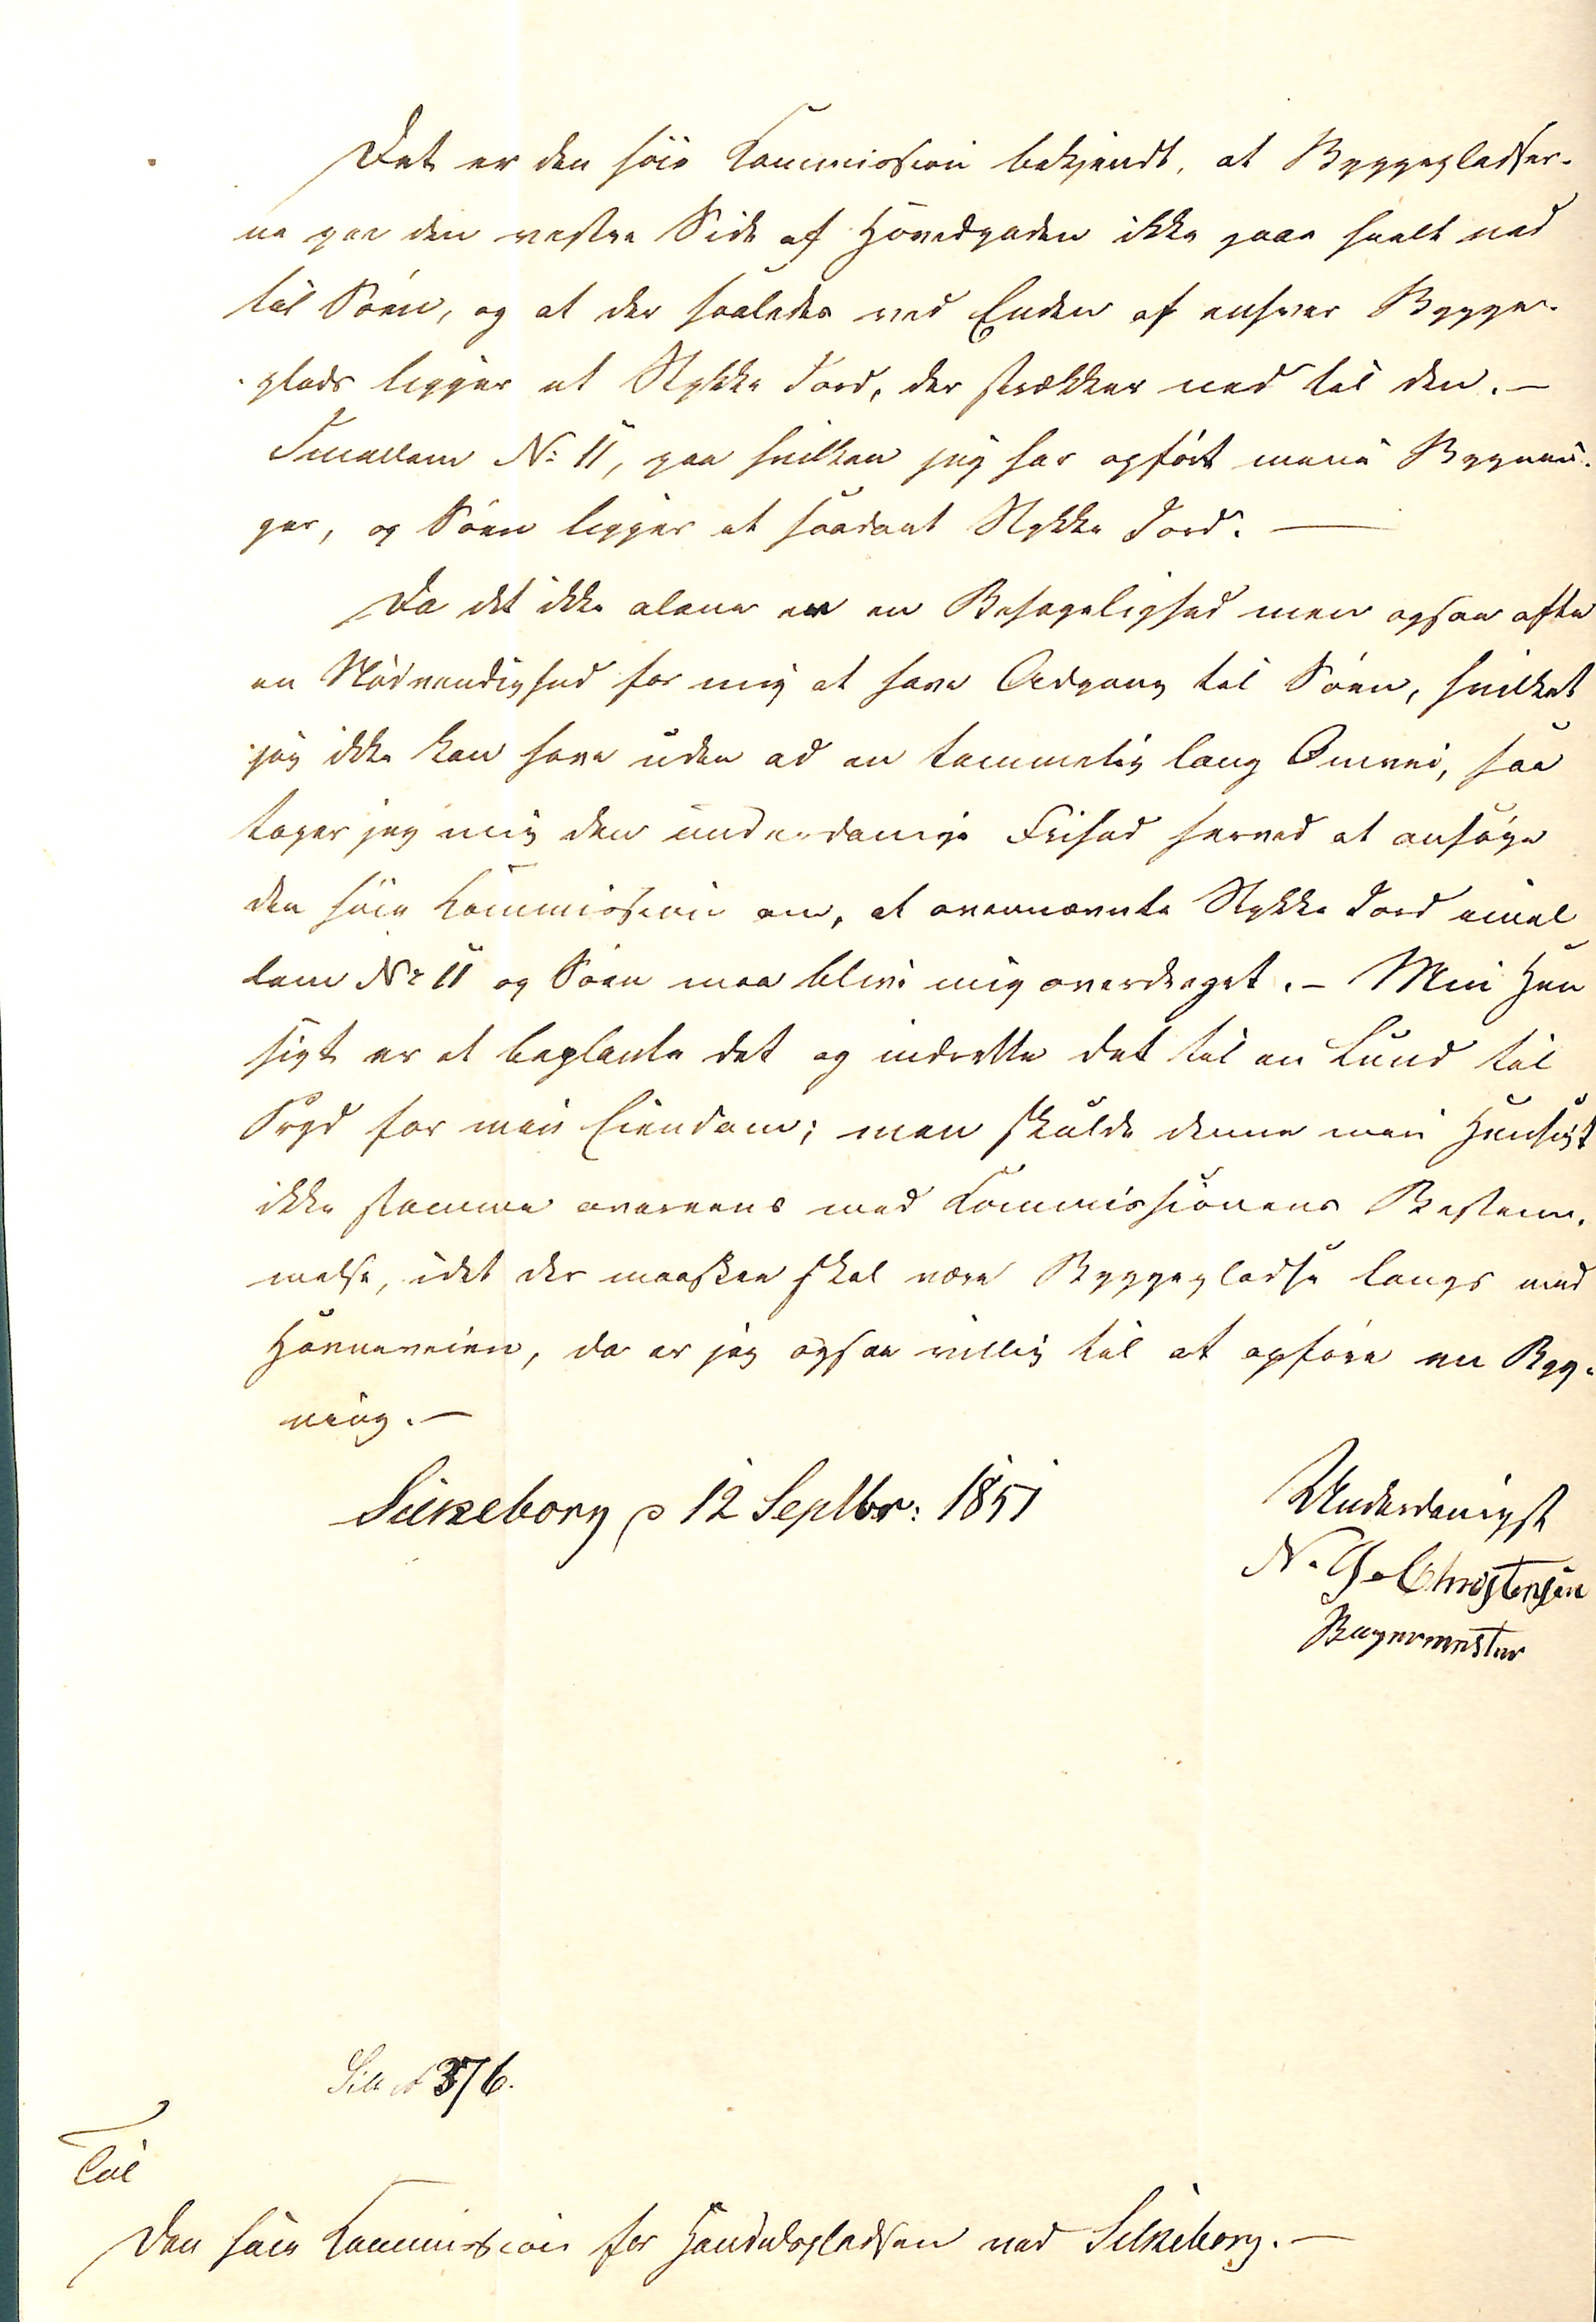 Det er den höie Kommission bekjendt, at Byggepladser-
ne paa den vestre Side af Hovedgaden ikke gaae heelt ned
til Söen, og at der saaledes ved Enden af enhver Bygge-
plads ligger et Stykke Jord, der strækker ned til den. —
Imellem No 11, paa hvilken jeg har opfört mine Bygnin-
ger, og Söen ligger et saadant Stykke Jord. —
Da det ikke alene er en Behagelighed men ogsaa ofte
en Nödvendighed for mig at have Adgang til Söen, hvilket
jeg ikke kan have uden ad en temmelig lang Omvei, saa
tager jeg mig den underdanige Frihed herved at ansöge
den höie Kommission om, at ovennævnte Stykke Jord imel
lem Nr 11 og Söen maa blive mig overdraget. — Min Hen
sigt er at beplante det og indrette det til en Lund til
Pryd for min Eiendom; men skulde denne min Hensigt
ikke stemme overeens med Kommissionens Bestem-
melse, idet der maaskee skal være Byggepladse langs med
Havneveien, da er jeg ogsaa villig til at opföre en Byg-
ning. —
Silkeborg d 12 Septbr: 1851
Underdanigst
N. G. Christensen
Bagermester
Silk No 376.
Til
Den höie Kommission for Handelspladsen ved Silkeborg. —